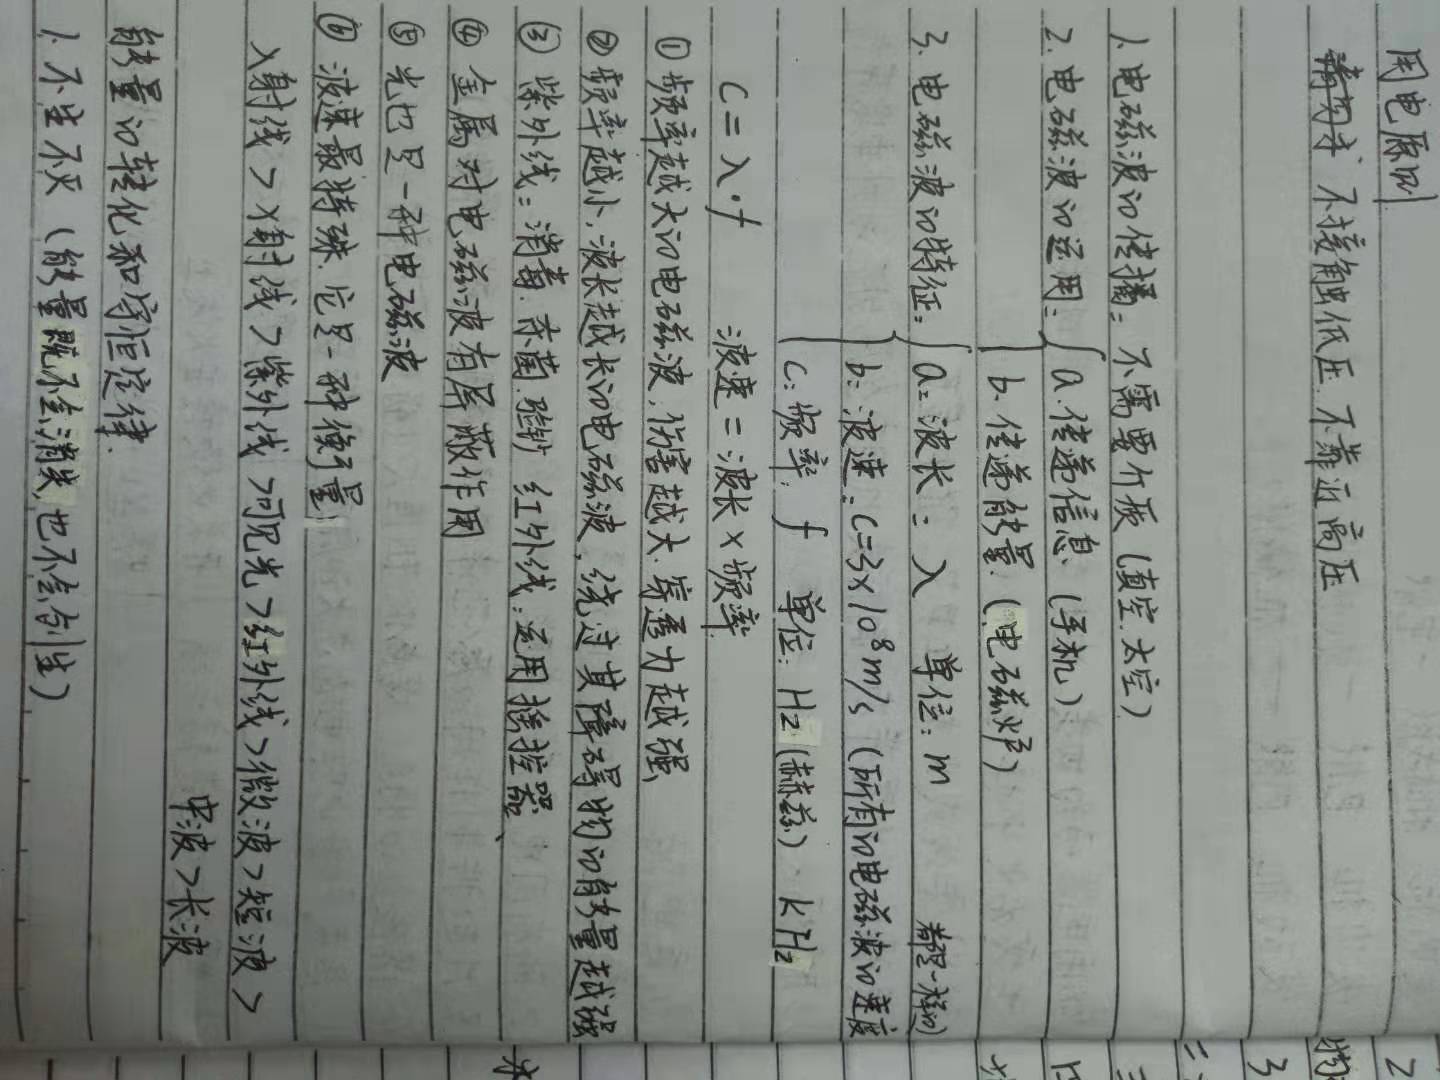 用电原则
不接触低压.不靠近高压
1.电磁波的传播：不需要介质（真空.太空）
2.电磁波的运用：a.传递信息（手机）
b.传递能量.（电磁炉）
3.电磁波的特征：a：波长：λ 单位：m
b：波速：C=3×10⁸m/s（所有的电磁波的速度都是一样的）
c.频率. f 单位：Hz（赫兹） kHz
C=λ·f 波速=波长×频率
①频率越大的电磁波，伤害越大.穿透力越强
②频率越小，波长越长的电磁波，绕过其障碍物的能量越强
③紫外线：消毒.杀菌.验钞 红外线：运用摇控器、
④金属对电磁波有屏蔽作用
⑤光也是一种电磁波
⑥波速最特殊.它是一种衡量；
γ射线>X射线>紫外线>可见光>红外线>微波>短波>
中波>长波
能量的转化和守恒定律.
1.不生不灭（能量既不会消失，也不会创生）
2
3